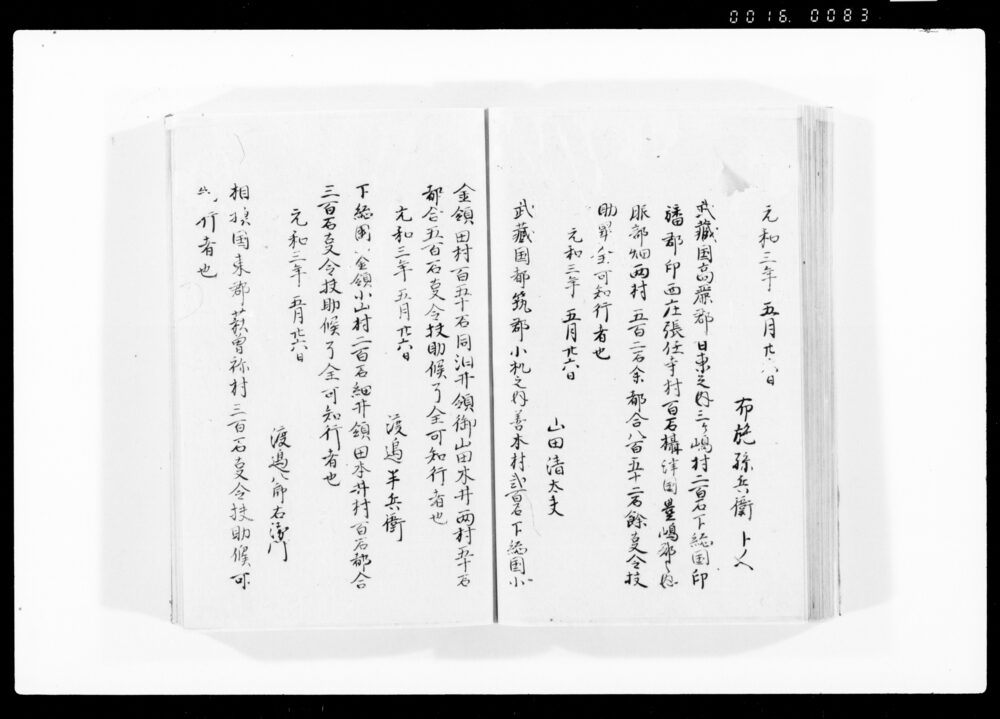 0016.0083
元和三年 五月廿六日
布施孫兵衛トヘ
武蔵国高麗郡日東之内三ヶ嶋村二百石下総国印
旛郡印西庄張任寺村百石攝津国豊嶋郡之内
服部畑両村五百二石余都合八百五十二石餘事令扶
助畢全可知行者也
元和三年 五月廿六日
山田清太夫
武蔵国都筑郡小机之内善本村弐百石下総国小
金領田村百五十石同泊井領御山田水井両村五十石
都合五百石事令扶助候了全可知行者也
元和三年 五月廿六日
渡邉半兵衛
下総国小金領小山村二百石細井領田本井村百石都合
三百石事令扶助候了全可知行者也
元和三年 五月廿六日
渡邉八郎右衛門
相模国東郡萩曽祢村三百石事令扶助候可
行者也